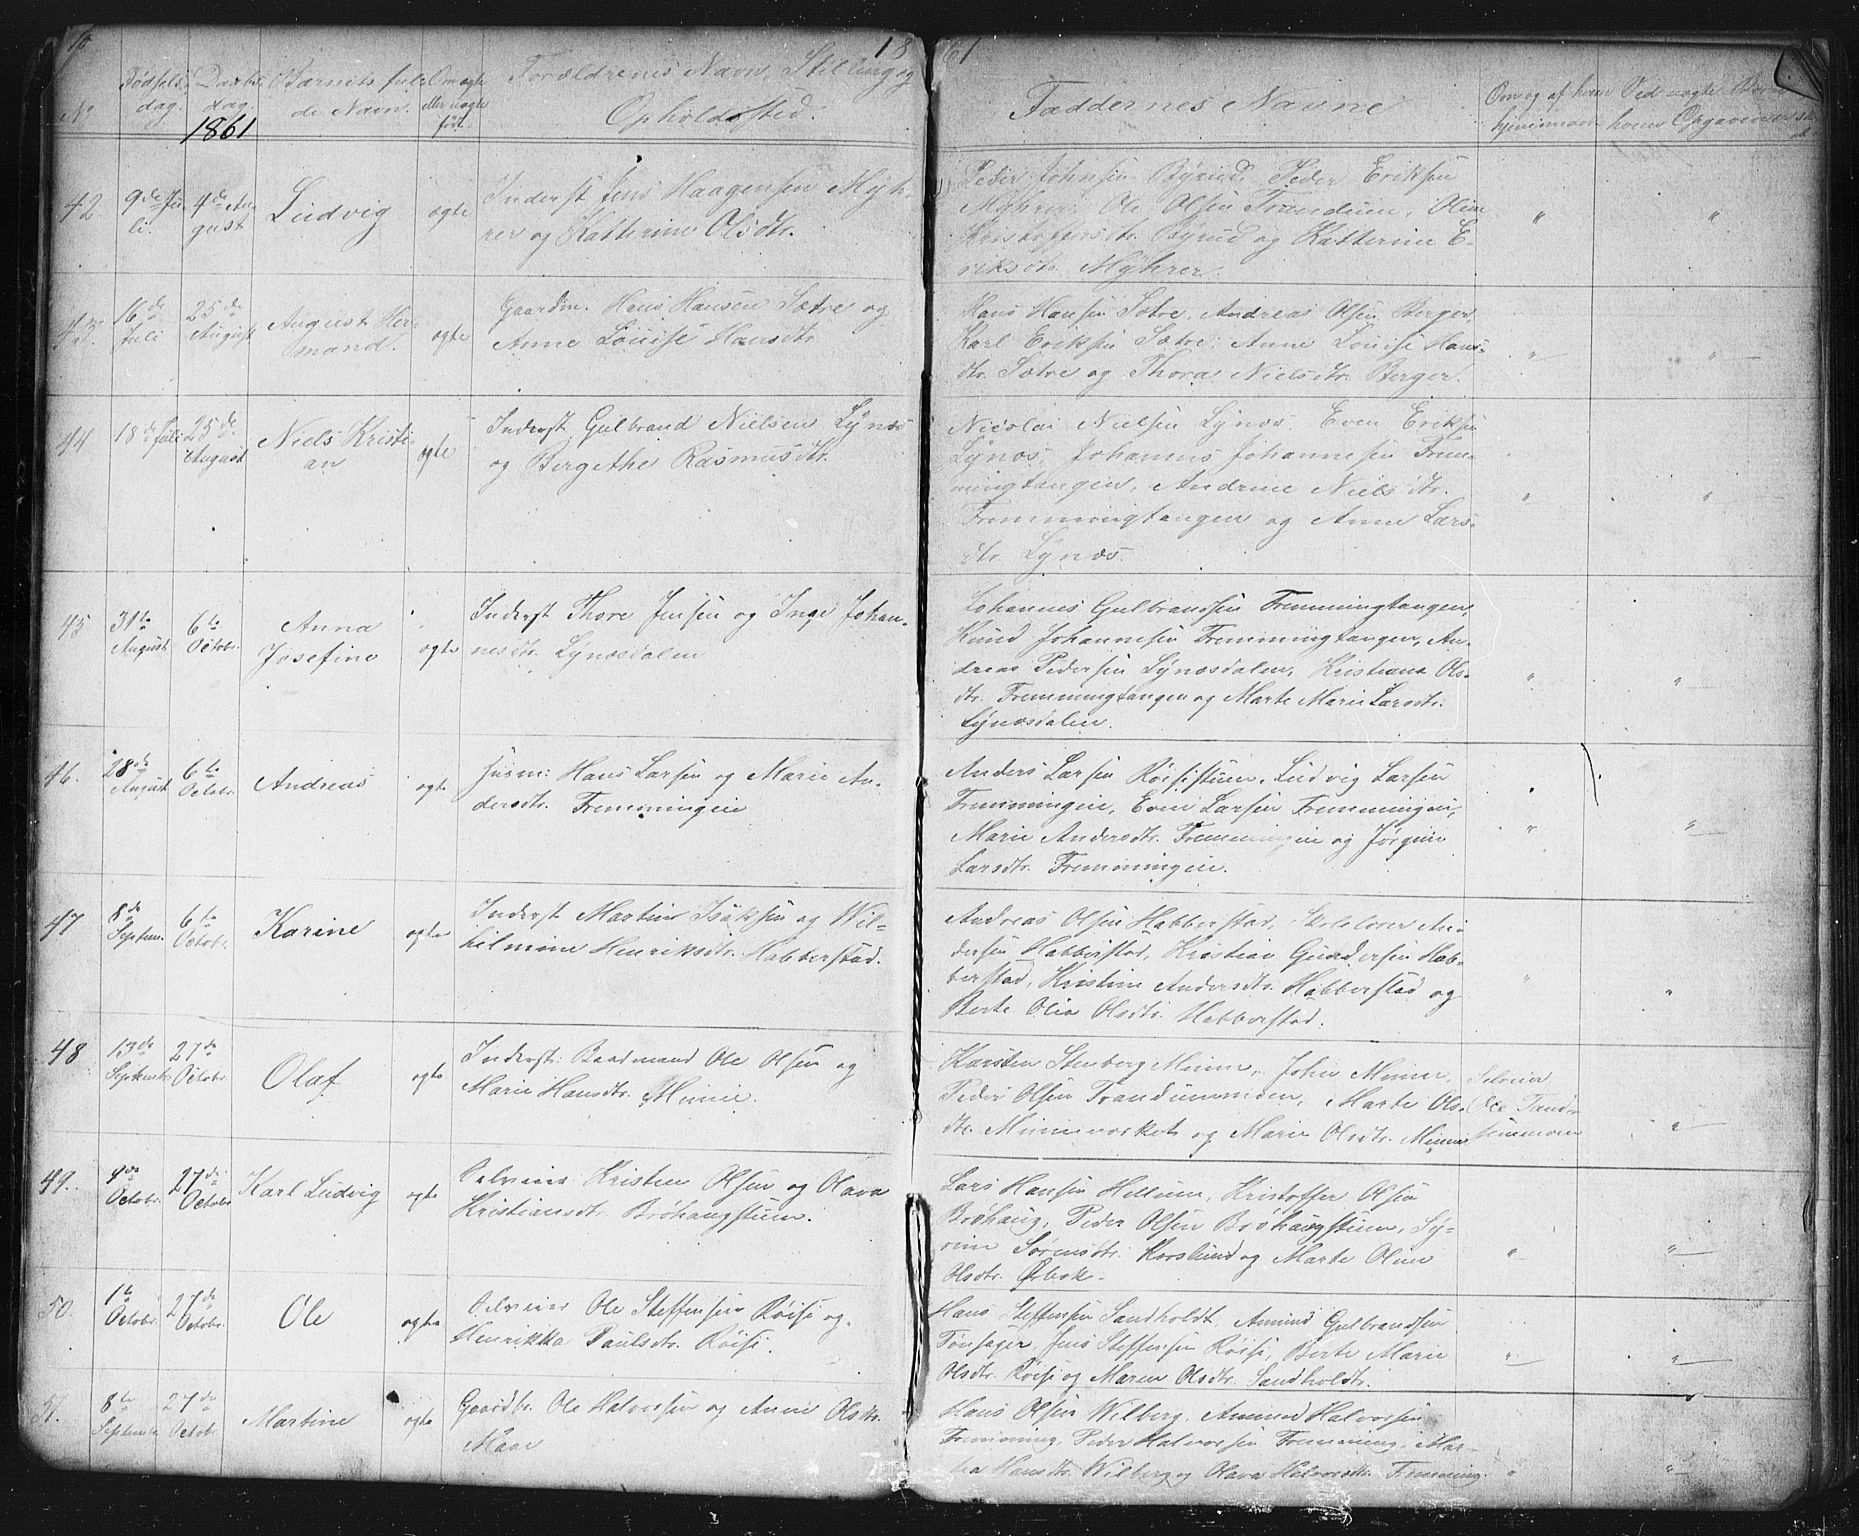 1861
No
Fødsels-
dag.
Daabs-
dag.
1861
Barnets ful-
de Navn.
Om ægte
eller uægte
født
Forældrenes Navn, Stilling og
Opholdssted.
Faddernes Navne
Om og af hvem
hjemmedøbt
Ved uægte Børn
hvem Opgaveren
42.
9de Ju-
li.
4de Au-
gust
Ludvig
ægte
Inderst Jens Haagensen Myh-
rer og Katterine Olsdtr.
Peder Johnsen Byrud, Peder Eriksen
Myhrer, Ole Olsen Trandum, Oline
Kristoffersdtr. Byrud og Katterine E-
riksdtr. Myhrer.
"
"
43.
16de
Juli
25de
August
August Her-
mand.
ægte
Gaardm. Hans Hansen Sætre og
Anne Louise Hansdtr
Hans Hansen Sætre, Andreas Olsen Berger
Karl Eriksen Sætre, Anne Louise Hans-
dtr. Sætre og Thora Nielsdtr. Berger.
"
"
44
18de Juli
25de
August
Niels Kristi-
an
ægte
Inderst Gulbrand Nielsen Lynæs
og Bergethe Rasmusdtr.
Nicolai Nielsen Lynæs, Even Eriksen
Lynæs, Johannes Johannesen Frem-
mingtangen, Andrine Nielsdtr.
Fremmingtangen og Anne Lars-
dtr. Lynæs.
"
"
45
31te
August
6te
Octobr.
Anna
Josefine
ægte
Inderst Thore Jensen og Inge Johan-
nesdtr. Lynæsdalen
Johannes Gulbrandsen Fremmingtangen,
Knud Johannesen Fremmingtangen, An-
dreas Pedersen Lynæsdalen, Kristiane Ols-
dtr. Fremmingtangen og Marte Marie Larsdtr.
Lynæsdalen.
"
"
46.
28de
August
6te
Octobr.
Andreas
ægte
Husm: Hans Larsen og Marie An-
dersdtr. Fremmingeie
Anders Larsen Røisistuen, Ludvig Larsen
Fremmingeie, Even Larsen Fremmingeie,
Marie Andersdtr. Fremmingeie og Jørgine
Larsdtr. Fremmingeie.
"
"
47
8de
Septem.
6te
Octobr.
Karine
ægte
Inderst Martin Isaksen og Wil-
helmine Henriksdtr. Habberstad.
Andreas Olsen Habberstad, Skolelærer An-
dersen Habberstad, Kristian Gundersen Hab-
berstad, Kristine Andersdtr. Habberstad og
Berte Olia Olsdtr. Habberstad.
"
"
48
13de
Septembr.
27de
Octobr.
Olaf
ægte
Inderst: Baadmand Ole Olsen og
Marie Hansdtr. Minne.
Karsten Stenberg Minne, John Minne,
Peder Olsen Trandumeiden, Marte Ols-
dtr. Minneværket og Marie Olsdtr. Minne
Selveier
Ole
"
49.
4de
Octobr.
27de
Octobr
Karl Ludvig
ægte
Selveier Kristen Olsen og Olava
Kristiansdtr. Brøhaugstuen.
Lars Hansen Hellum, Kristoffer Olsen
Brøhaug, Peder Olsen Brøhaugstuen, Sy-
rine Sørensdtr. Korslund og Marte Oline
Olsdtr. Ørbæk.
"
"
50.
1te
Octobr.
27de
Octobr.
Ole
ægte
Selveier Ole Steffensen Røise og
Henrikka Paulsdtr. Røise.
Hans Steffensen Sandholdt, Amund Gulbrandsen
Tønsager, Jens Steffensen Røise, Berte Marie
Olsdtr. Røise og Maren Olsdtr. Sandholdt.
"
"
51.
8de
Septembr.
27de
Octobr.
Martine
ægte
Gaardbr. Ole Halvorsen og Anne Olsdtr.
Maae
Hans Olsen Wilberg, Amund Halvorsen
Fremming, Peder Halvorsen Fremming, Mar-
tea Hansdtr. Wilberg og Olava Halvorsdtr. Fremming.
"
"